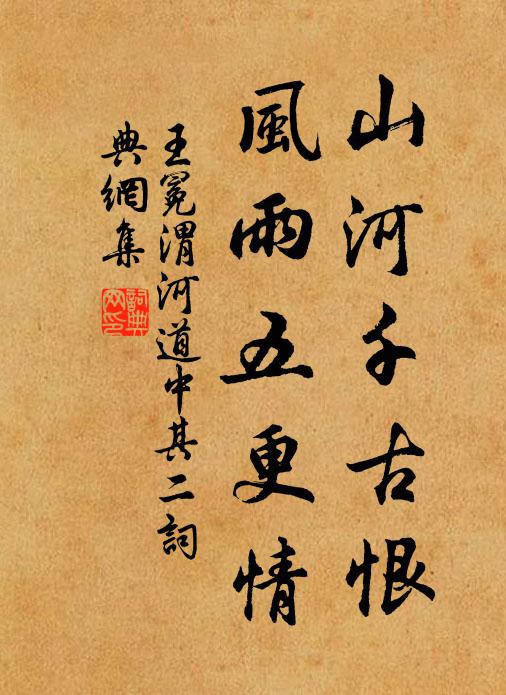 山河千古恨
風雨五更情
王冕渭河道中其二詞
典網集
詞典
网印